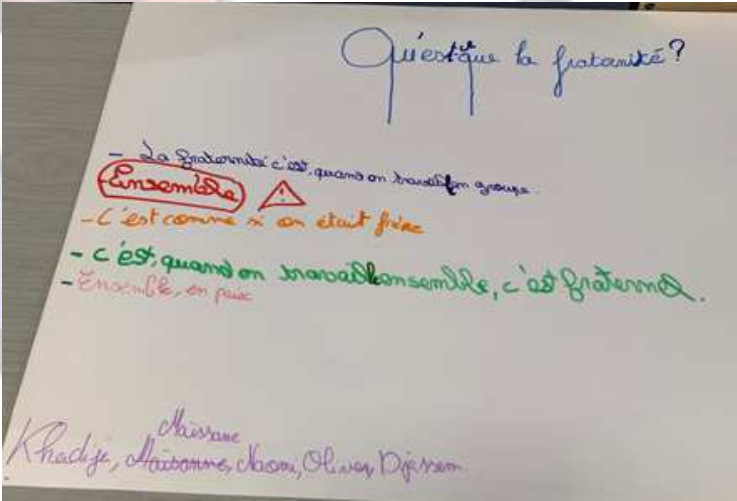 Qu'est ce que la fratanité?
- La fraternité c'est, quand on travaille en groupe.
- Ensemble
- C'est comme si on était frère
- C'est, quand on travaille ensemble, c'est fraternel.
- Ensemble, en paix
Naïssane
Khadije, Naomi, Oliver, Djassem